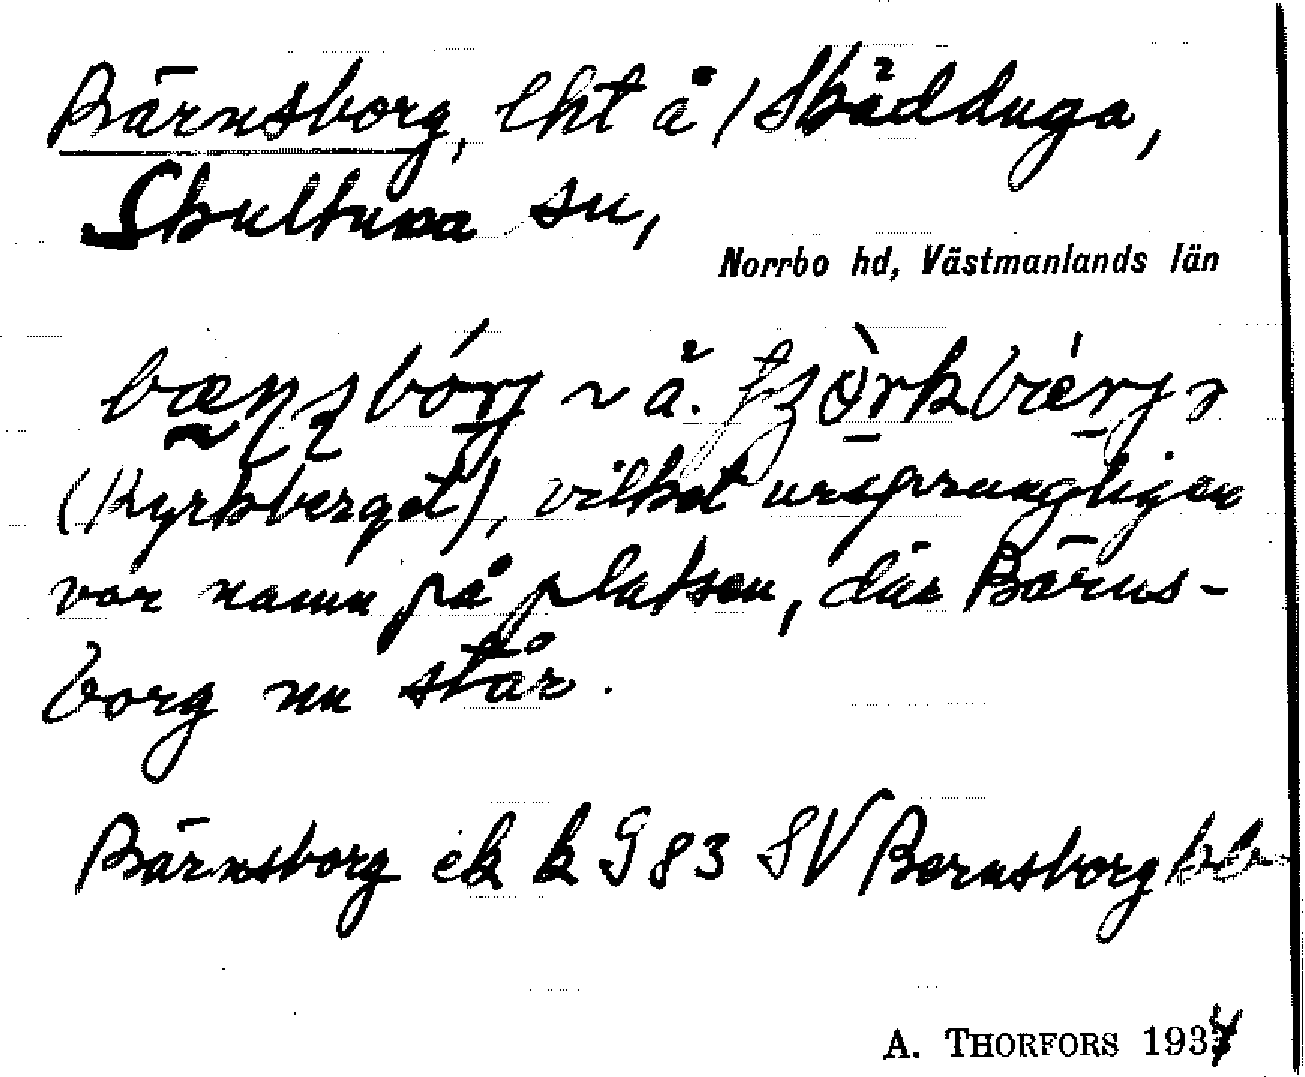 Bärnsborg, lht å /Skädduga,
Skultuna sn,
Norrbo hd, Västmanlands län
~ å.
(Kyrkberget), vilket ursprungligen
var namn på platsen, där Bärns-
borg nu står.
Bärnsborg ek k G 83 SV Bernsborg
A. THORFORS 1934